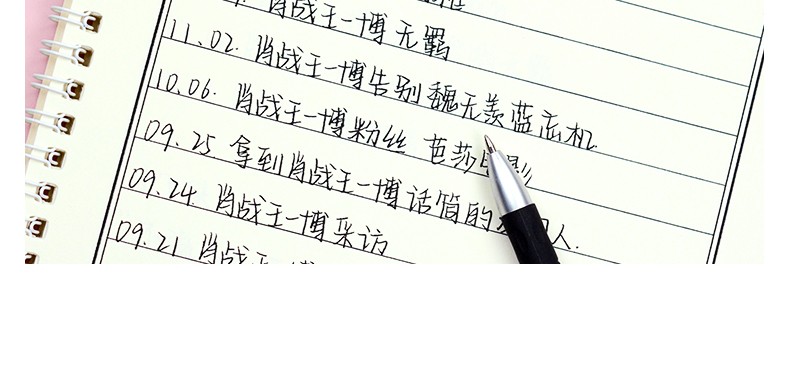 肖战王一博无羁
11.02. 肖战王一博告别魏无羡蓝忘机
10.06. 肖战王一博粉丝 芭莎电影
09.25 拿到肖战王一博话筒的 人.
09.24 肖战王一博采访
09.21 肖战王一博